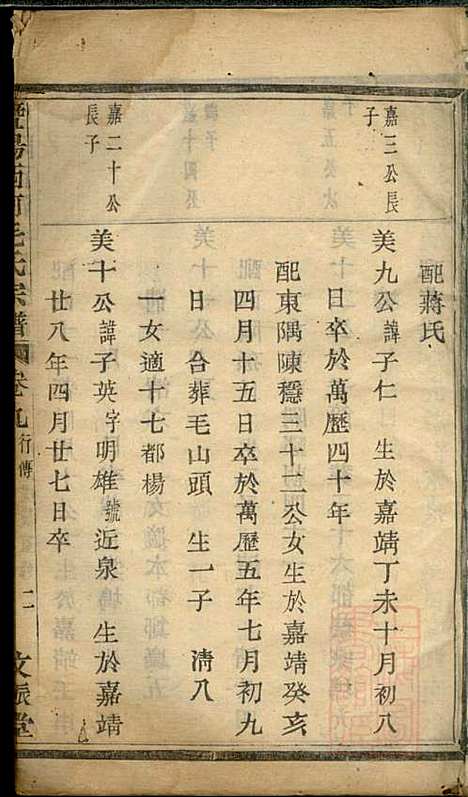 配蔣氏
嘉三公長
子
美九公諱子仁 生於嘉靖丁未十月初八
日卒於萬歷四十年
配東隅陳穩三十二公女生於嘉靖癸亥
四月十五日卒於萬歷五年七月初九
日 合葬毛山頭 生一子 清八
一女適十七都楊
嘉二十公
長子
美十公諱子英字明雄號近泉 生於嘉靖
廿八年四月廿七日卒
暨陽南門毛氏宗譜 卷九 行傳 二 文振堂